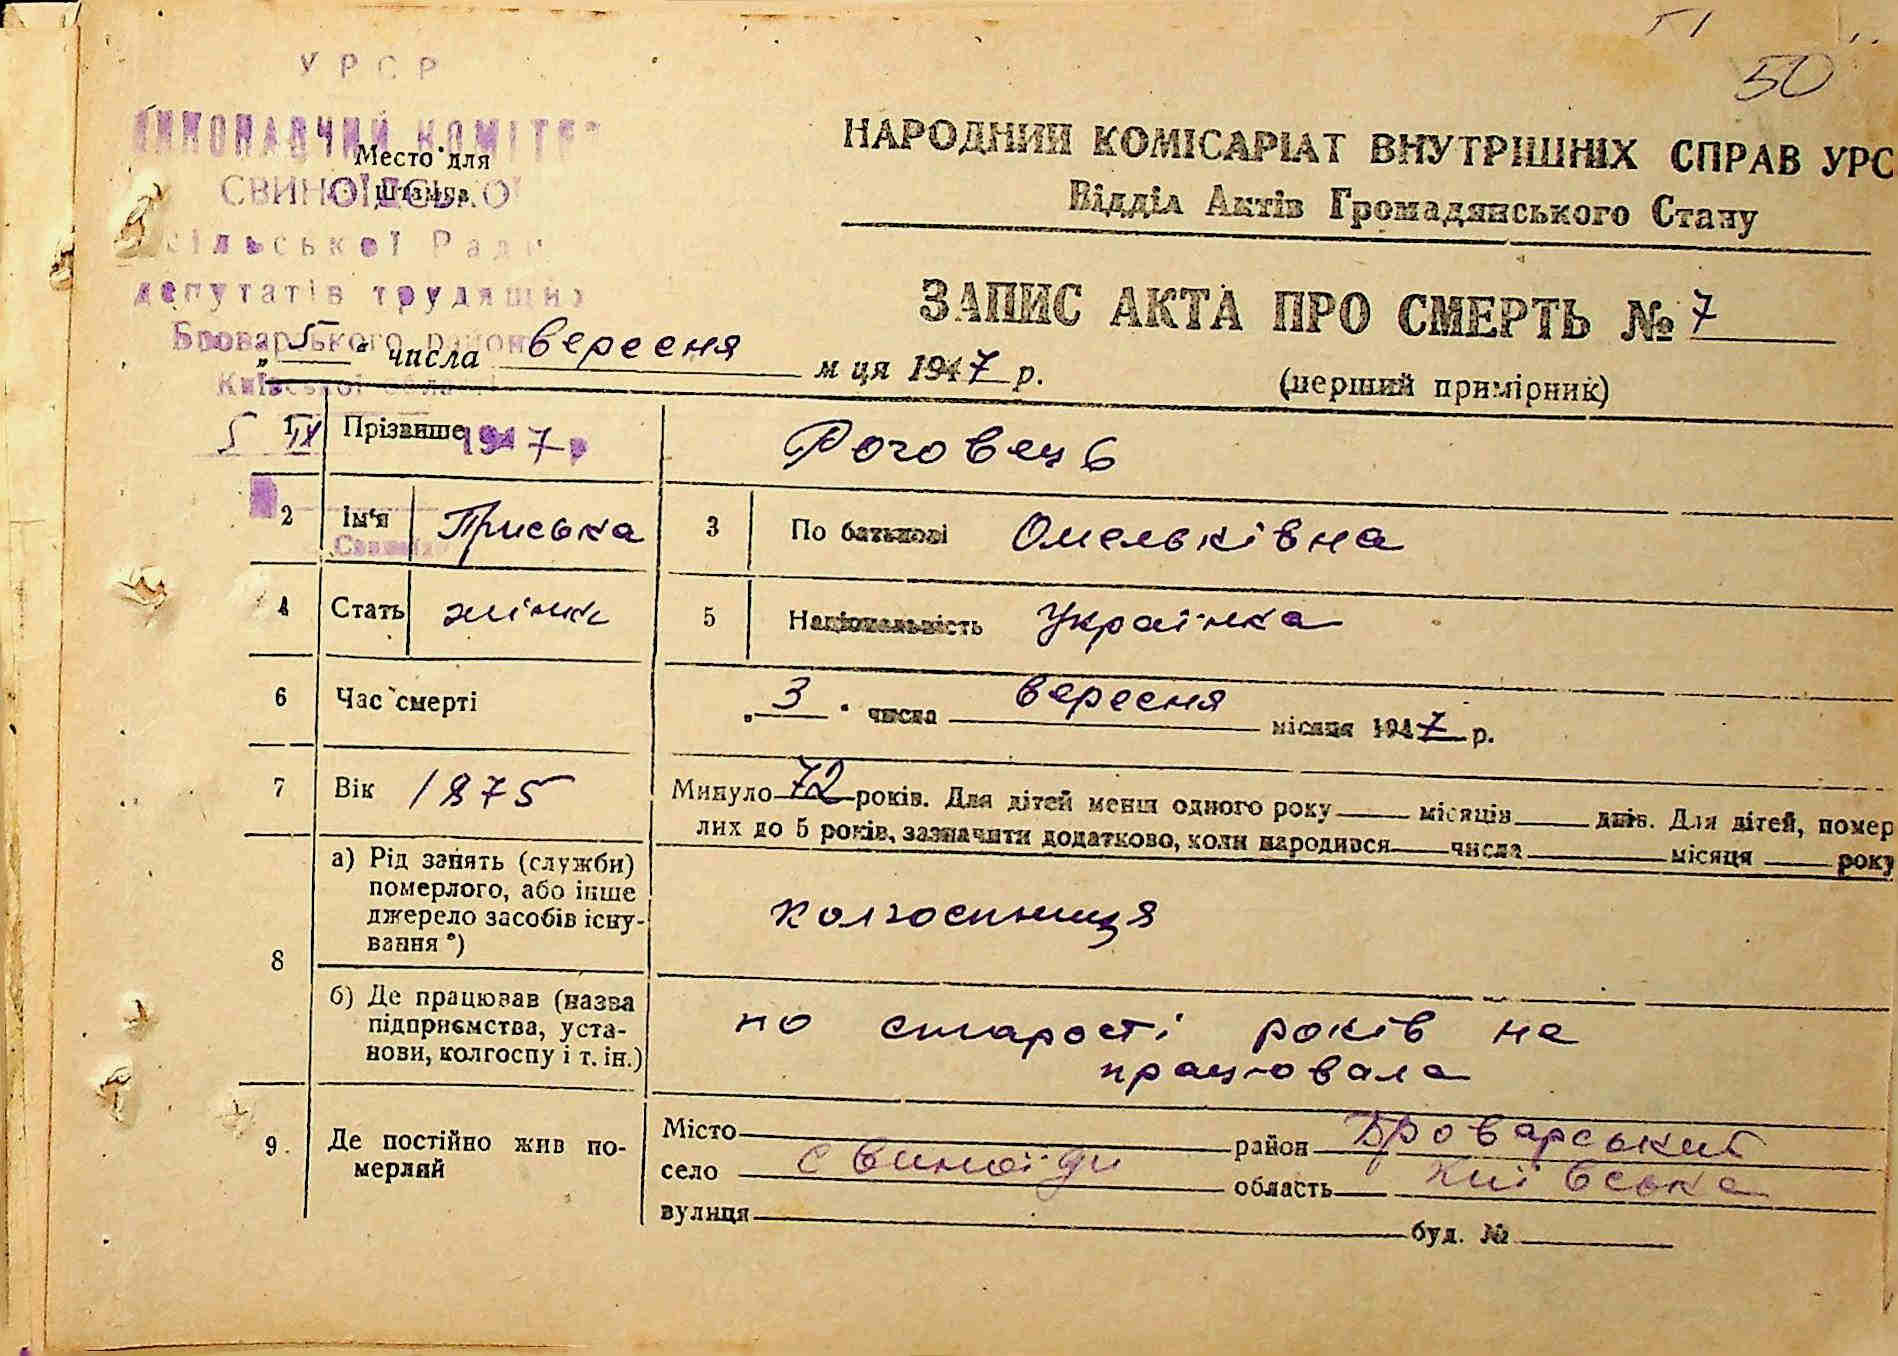 50
УРСР
ВИКОНАВЧИЙ КОМІТЕ
Место для
штампа
СВИНОЇДСЬКОЇ
сільської Ради
депутатів трудящих
Броварського району
Київської області
5 IX 1947 р
НАРОДНИЙ КОМІСАРІАТ ВНУТРІШНІХ СПРАВ УРС
Відділ Актів Громадянського Стану
ЗАПИС АКТА ПРО СМЕРТЬ № 7
„ 5 “ числа вересня м ця 1947 р.
(перший примірник)
1 Прізвище Роговець
2 Ім'я Приська 3 По батькові Омельківна
4 Стать жінка 5 Національність Українка
6 Час смерті „ 3 “ числа вересня місяця 1947 р.
7 Вік 1875 Минуло 72 років. Для дітей менш одного року місяців днів. Для дітей, помер
лих до 5 років, зазначити додатково, коли народився числа місяця року
8 а) Рід занять (служби)
померлого, або інше
джерело засобів існу-
вання *)
колгоспниця
б) Де працював (назва
підприємства, уста-
нови, колгоспу і т. ін.)
по старості років не
працювала
9. Де постійно жив по-
мерлий
Місто район Броварський
село Свиноїди область Київська
вулиця буд. №